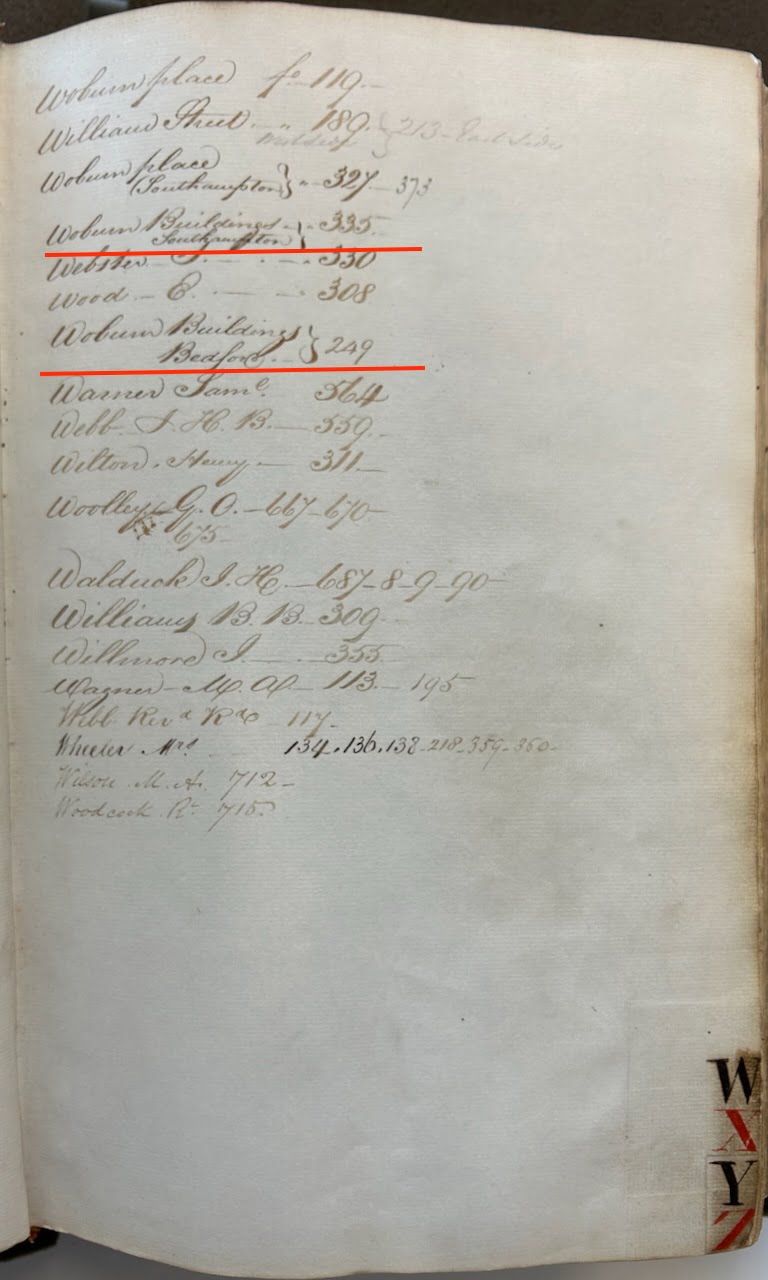 Woburn place fo 119.-
William Street - " 189. } 213 - East Side
Woburn place
(Southampton } " - 327 - 373
Woburn Buildings - } - 335
Southampton
Webster - - . - 330
Wood - E. - - . 308
Woburn Buildings }
Bedford - } 249
Warner Saml. 564
Webb - J. H. B. - 559.-
Wilton . Henry - 311.-
Woolley - G. O. - 667 - 670 -
675 -
Walduck J. H. - 687 - 8 - 9 - 90 -
Williams B. B. - 309 -
Willmore J. - . 355.
Wagner - M. A. - 113. - 195
Webb Revd Rd - 117 -
Wheeler Mrs 134 . 136 . 138 - 218 - 359 - 360 -
Wilson . M. A. 712 -
Woodcock R. 715.
W
X
Y
Z